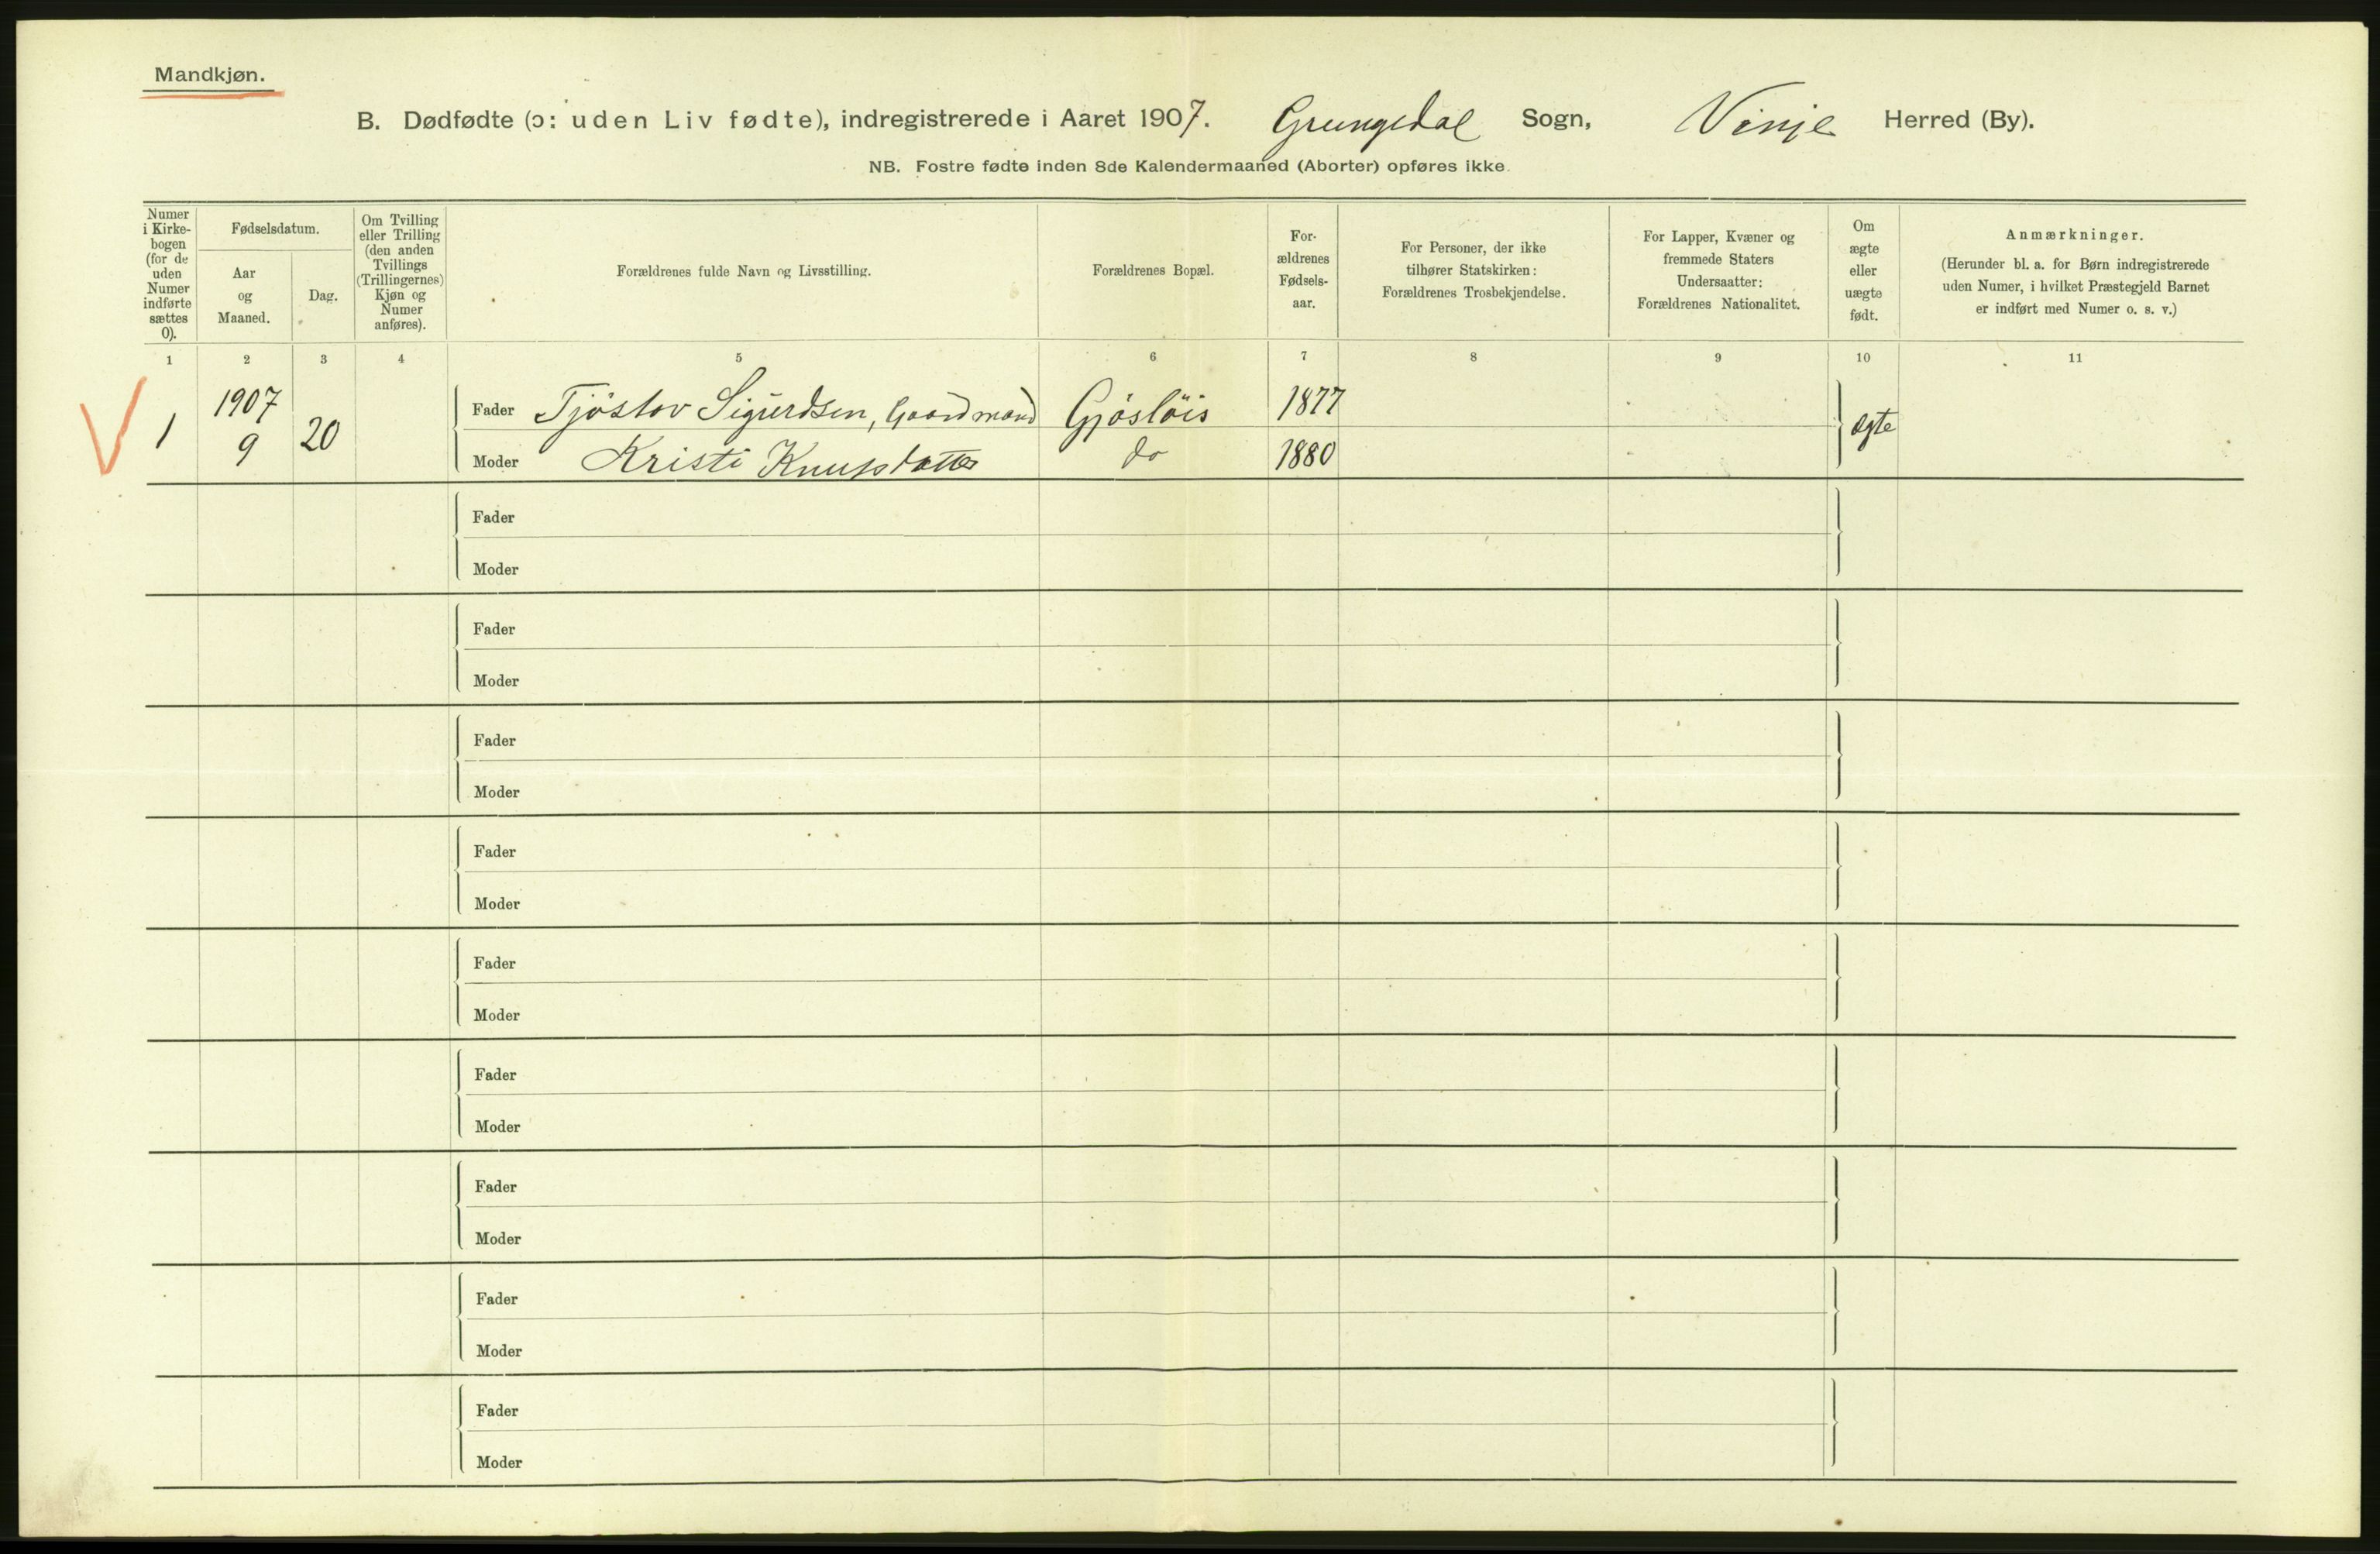 Mandkjøn.
B. Dødfødte (ɔ: uden Liv fødte), indregistrerede i Aaret 1907. Grungedal Sogn, Vinje Herred (By).
NB. Fostre fødte inden 8de Kalendermaaned (Aborter) opføres ikke.
Numer
i Kirke-
bogen
(for de
uden
Numer
indførte
sættes
0).
Fødselsdatum.
Aar
og
Maaned.
Dag.
Om Tvilling
eller Trilling
(den anden
Tvillings
(Trillingernes)
Kjøn og
Numer
anføres).
Forældrenes fulde Navn og Livsstilling.
Forældrenes Bopæl.
For-
ældrenes
Fødsels-
aar.
For Personer, der ikke
tilhører Statskirken:
Forældrenes Trosbekjendelse.
For Lapper, Kvæner og
fremmede Staters
Undersaatter:
Forældrenes Nationalitet.
Om
ægte
eller
uægte
født.
Anmærkninger.
(Herunder bl. a. for Børn indregistrerede
uden Numer, i hvilket Præstegjeld Barnet
er indført med Numer o. s. v.)
1 2 3 4 5 6 7 8 9 10 11
1 1907 9 20
Fader Tjöstov Sigurdsen, Gaardmand Gjöslöis 1877 ægte
Moder Kristi Knutsdatter do 1880
Fader
Moder
Fader
Moder
Fader
Moder
Fader
Moder
Fader
Moder
Fader
Moder
Fader
Moder
Fader
Moder
Fader
Moder